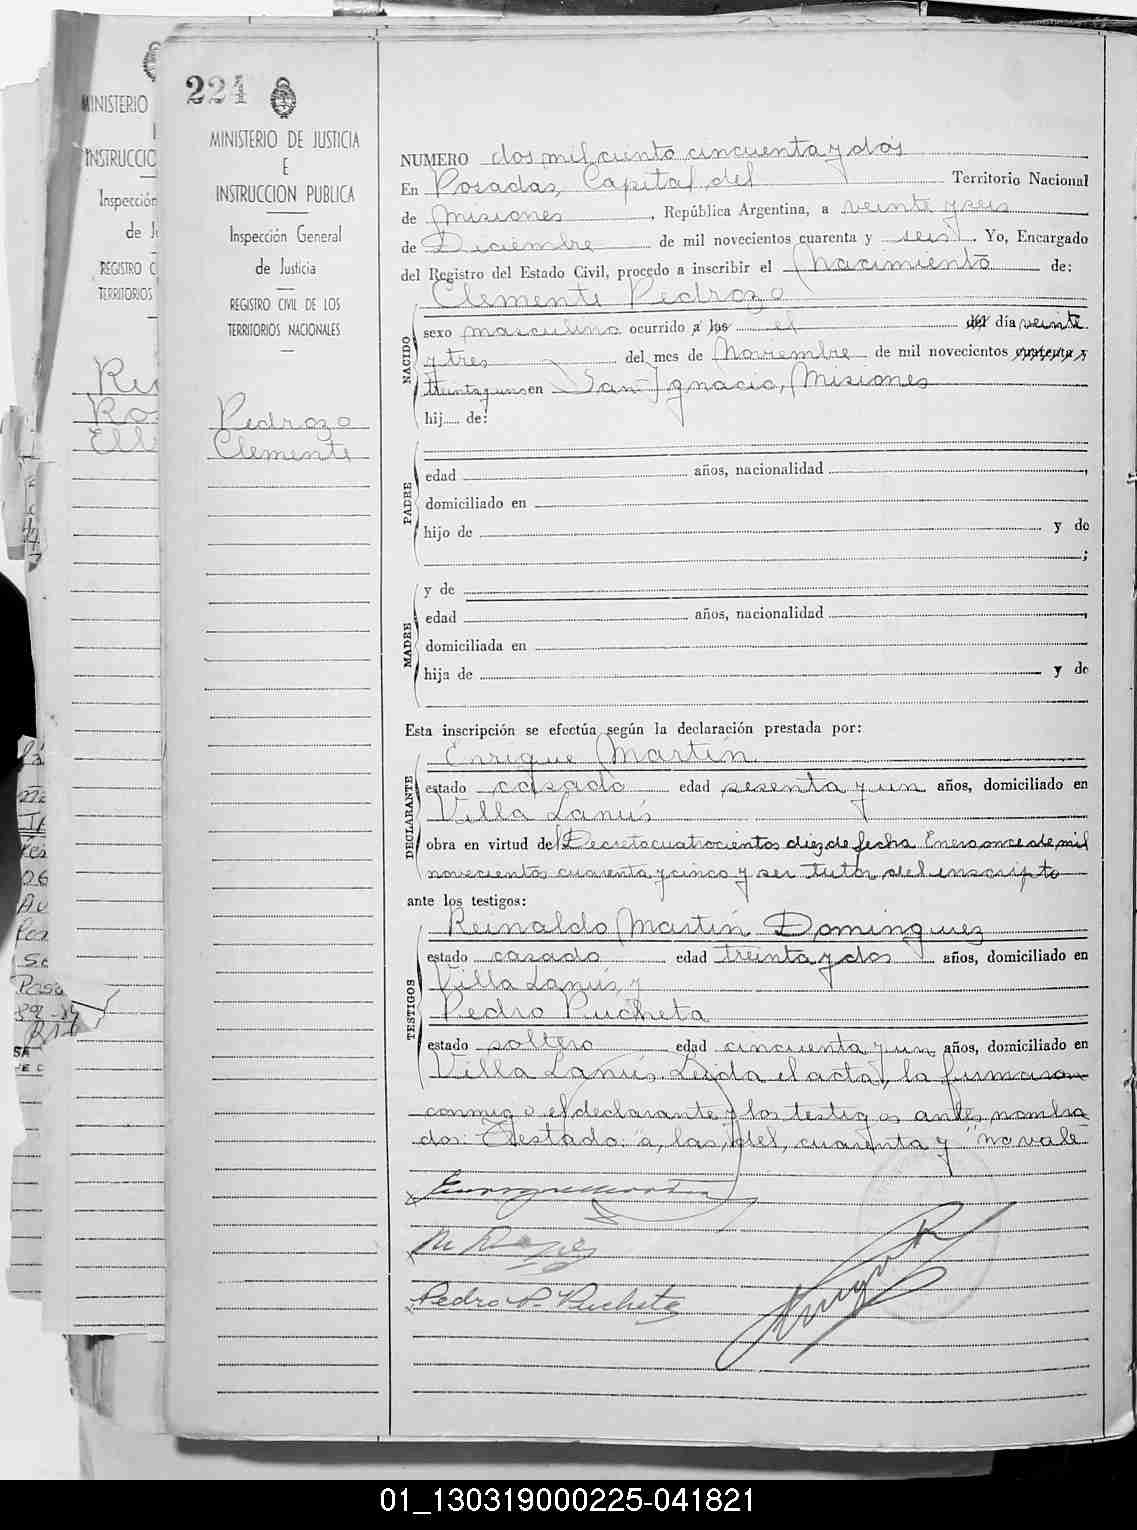 224
MINISTERIO DE JUSTICIA
E
INSTRUCCION PUBLICA
Inspección General
de Justicia
REGISTRO CIVIL DE LOS
TERRITORIOS NACIONALES
Pedrozo
Clemente
NUMERO dos mil ciento cincuenta y dos
En Posadas, Capital del Territorio Nacional
de Misiones, República Argentina, a veinte y seis
de Diciembre de mil novecientos cuarenta y seis. Yo, Encargado
del Registro del Estado Civil, procedo a inscribir el Nacimiento de:
Clemente Pedrozo
NACIDO
sexo masculino ocurrido a las el del día veinte
y tres del mes de Noviembre de mil novecientos cuarenta y
treinta y uno en San Ignacio, Misiones
hij..... de:
PADRE
edad años, nacionalidad ,
domiciliado en
hijo de y de
;
MADRE
y de
edad años, nacionalidad ,
domiciliada en
hija de y de
Esta inscripción se efectúa según la declaración prestada por:
DECLARANTE
Enrique Martín
estado casado edad sesenta y un años, domiciliado en
Villa Lanús
obra en virtud del Decreto cuatrocientos diez de fecha Enero once de mil
novecientos cuarenta y cinco y ser tutor del inscripto
ante los testigos:
TESTIGOS
Reinaldo Martín Dominguez
estado casado edad treinta y dos años, domiciliado en
Villa Lanús y
Pedro Pucheta
estado soltero edad cincuenta y un años, domiciliado en
Villa Lanús. Leída el acta, la firmaron
conmigo el declarante y los testigos antes nombra
dos: Testado: "a, las, del, cuarenta y "no vale
Pedro P. Pucheta
MINISTERIO
INSTRUCCIO
Inspección
de Ju
REGISTRO C
TERRITORIOS
01_130319000225-041821